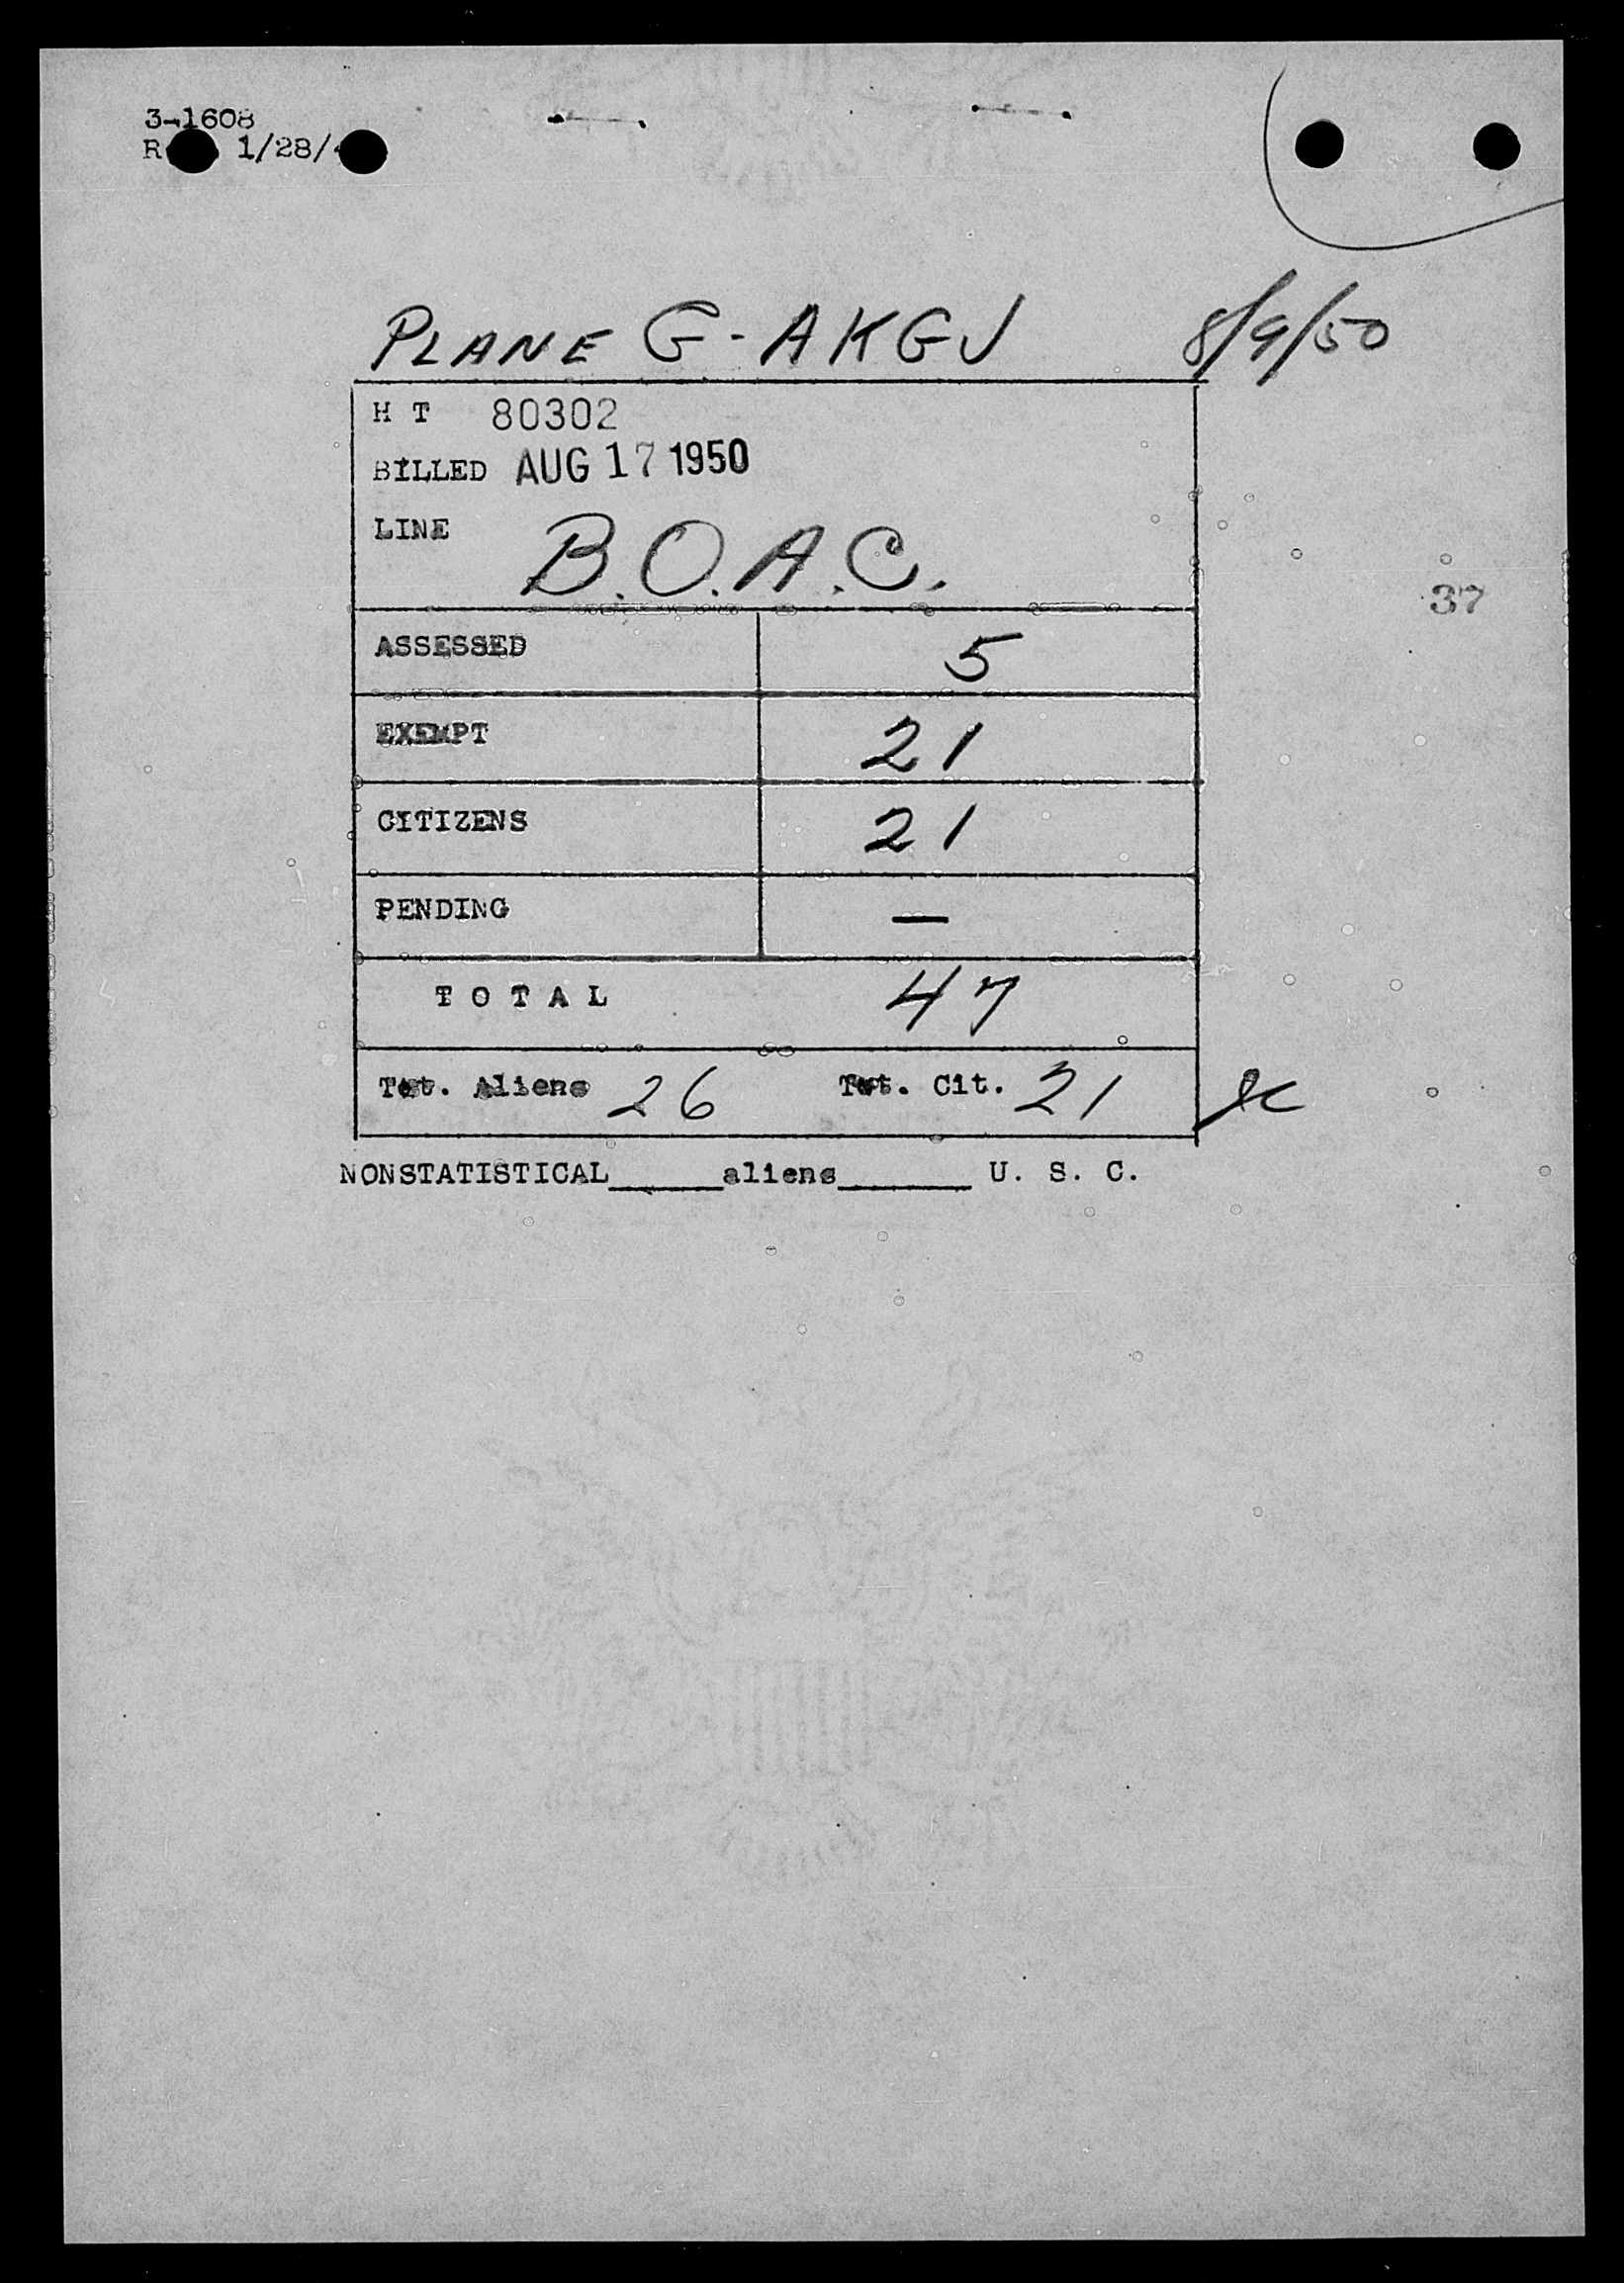 3-1608
1/28/
PLANE G-AKGJ 8/9/50
H T 80302
BILLED AUG 17 1950
LINE B.O.A.C.
37
ASSESSED 5
EXEMPT 21
CITIZENS 21
PENDING —
T O T A L 47
Tot. Aliens 26 Tot. Cit. 21
NONSTATISTICAL______aliens______ U. S. C.